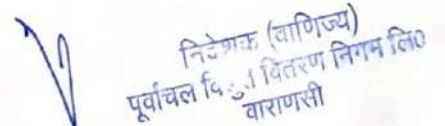 निदेशक (वाणिज्य)
पूर्वांचल वितरण निगम लि०
वाराणसी